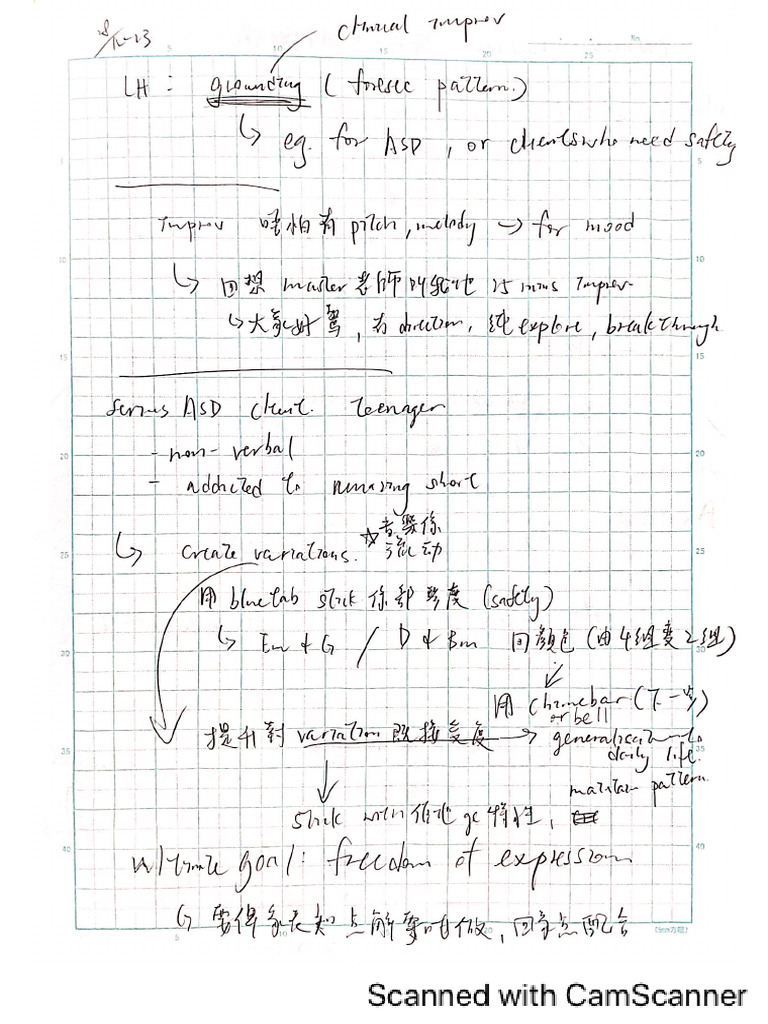 clinical improv
LH : grounding ( foresee pattern.)
↳ eg. for ASD , or clients who need safety
Improv 唔怕有 pitch , melody → for mood
↳ 回想 master 老師叫我地 15 mins Improv
↳ 大家好驚 , 冇 direction , 純 explore , breakthrough
Serious ASD client. teenager
- non-verbal
- addicted to
↳ create variations. ☆音樂係
流动
用 bluetab stick 係部 (safety)
↳ Em & G / D & Bm 同顏色 (由4組變2組)
用 chimebar (下一步)
or bell
提升對 variation 既接受度 → generalization to
daily life.
maintain pattern.
stick with 佢地 ge 特性 ,
ultimate goal : freedom of expression
↳ 要得家長知点解要咁做 , 回家点配合
Scanned with CamScanner